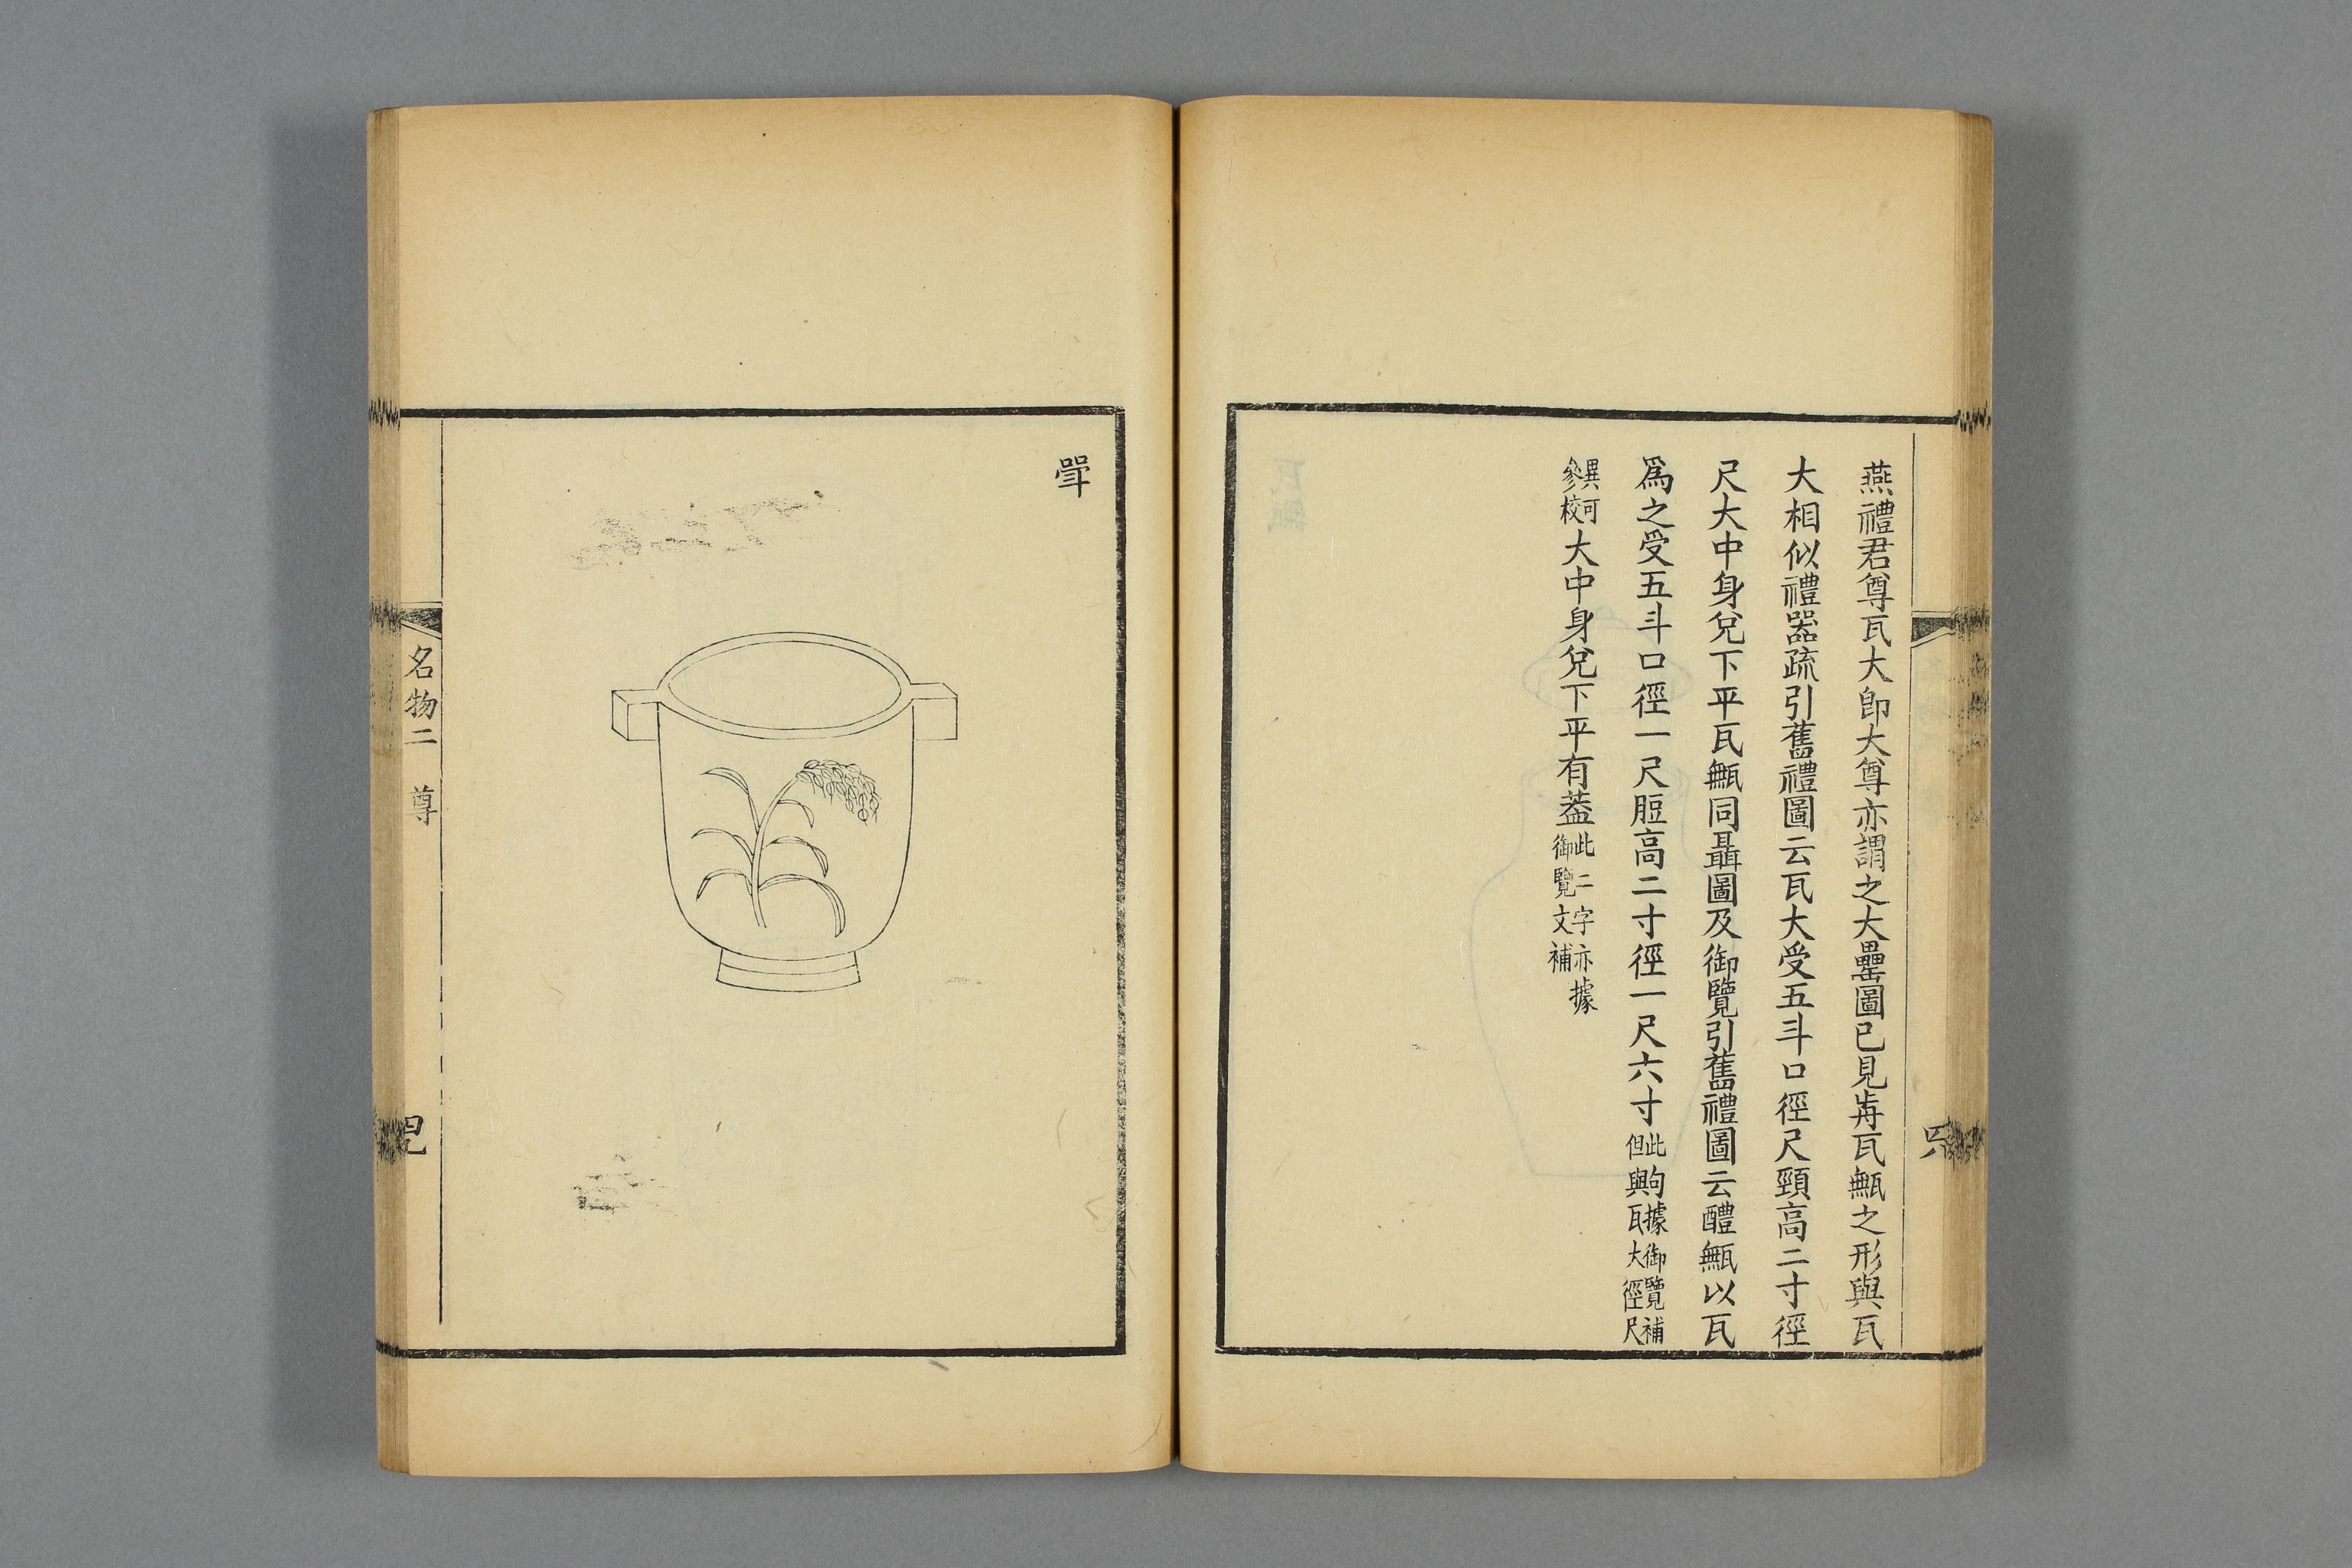 燕禮君尊瓦大卽大尊亦謂之大罍圖已見歬瓦甒之形與瓦
大相似禮器疏引舊禮圖云瓦大受五斗口徑尺頸高二寸徑
尺大中身兌下平瓦甒同聶圖及御覽引舊禮圖云醴甒以瓦
爲之受五斗口徑一尺脰高二寸徑一尺六寸此句據御覽補但與瓦大徑尺
異可參校大中身兌下平有蓋此二字亦據御覽文補
斝
名物二 尊